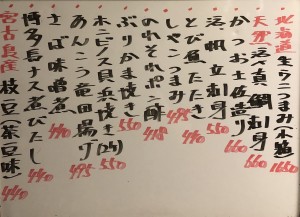 北海道生ウニつまみ(木箱) 1650
天然活〆真鯛刺身 660
かつお土佐造り 660
活〆帆立刺身 550
とび魚たたき
しゃこつまみ 495
のれそれポン酢 418
ぶりかま焼き 550
ホンビノス貝浜焼き(2ケ) 550
あんこう竜田揚げ 495
さば味噌煮 440
博多長ナス煮びたし 440
宮古島産枝豆(茶豆味) 440